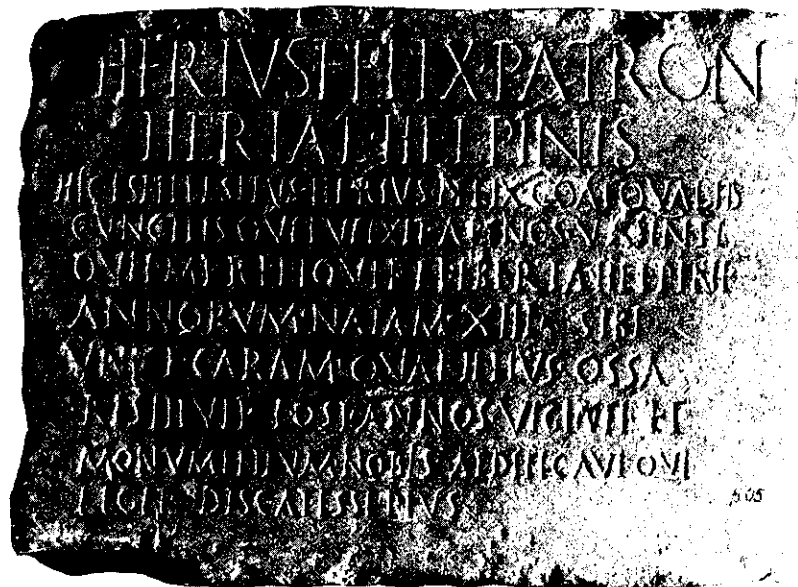 HERIVS FELIX PATRON
HERIAE HELPINIS
HIC EST ILLE SITUS HERIVS FELIX COAEQVALIB
CVNCTIS QVI VIXIT ANNOS
QVIDEM RELIQVIT LIBERTA HELPINE
ANNORVM NATAM XIII SIBI
CARAM QVAE ILLIVS OSSA
POST ANNOS VIGINTI ET
MONVMENTVM NOBIS AEDIFICAVI QVI
LEGIT DISCAT ESSE PIVS
505